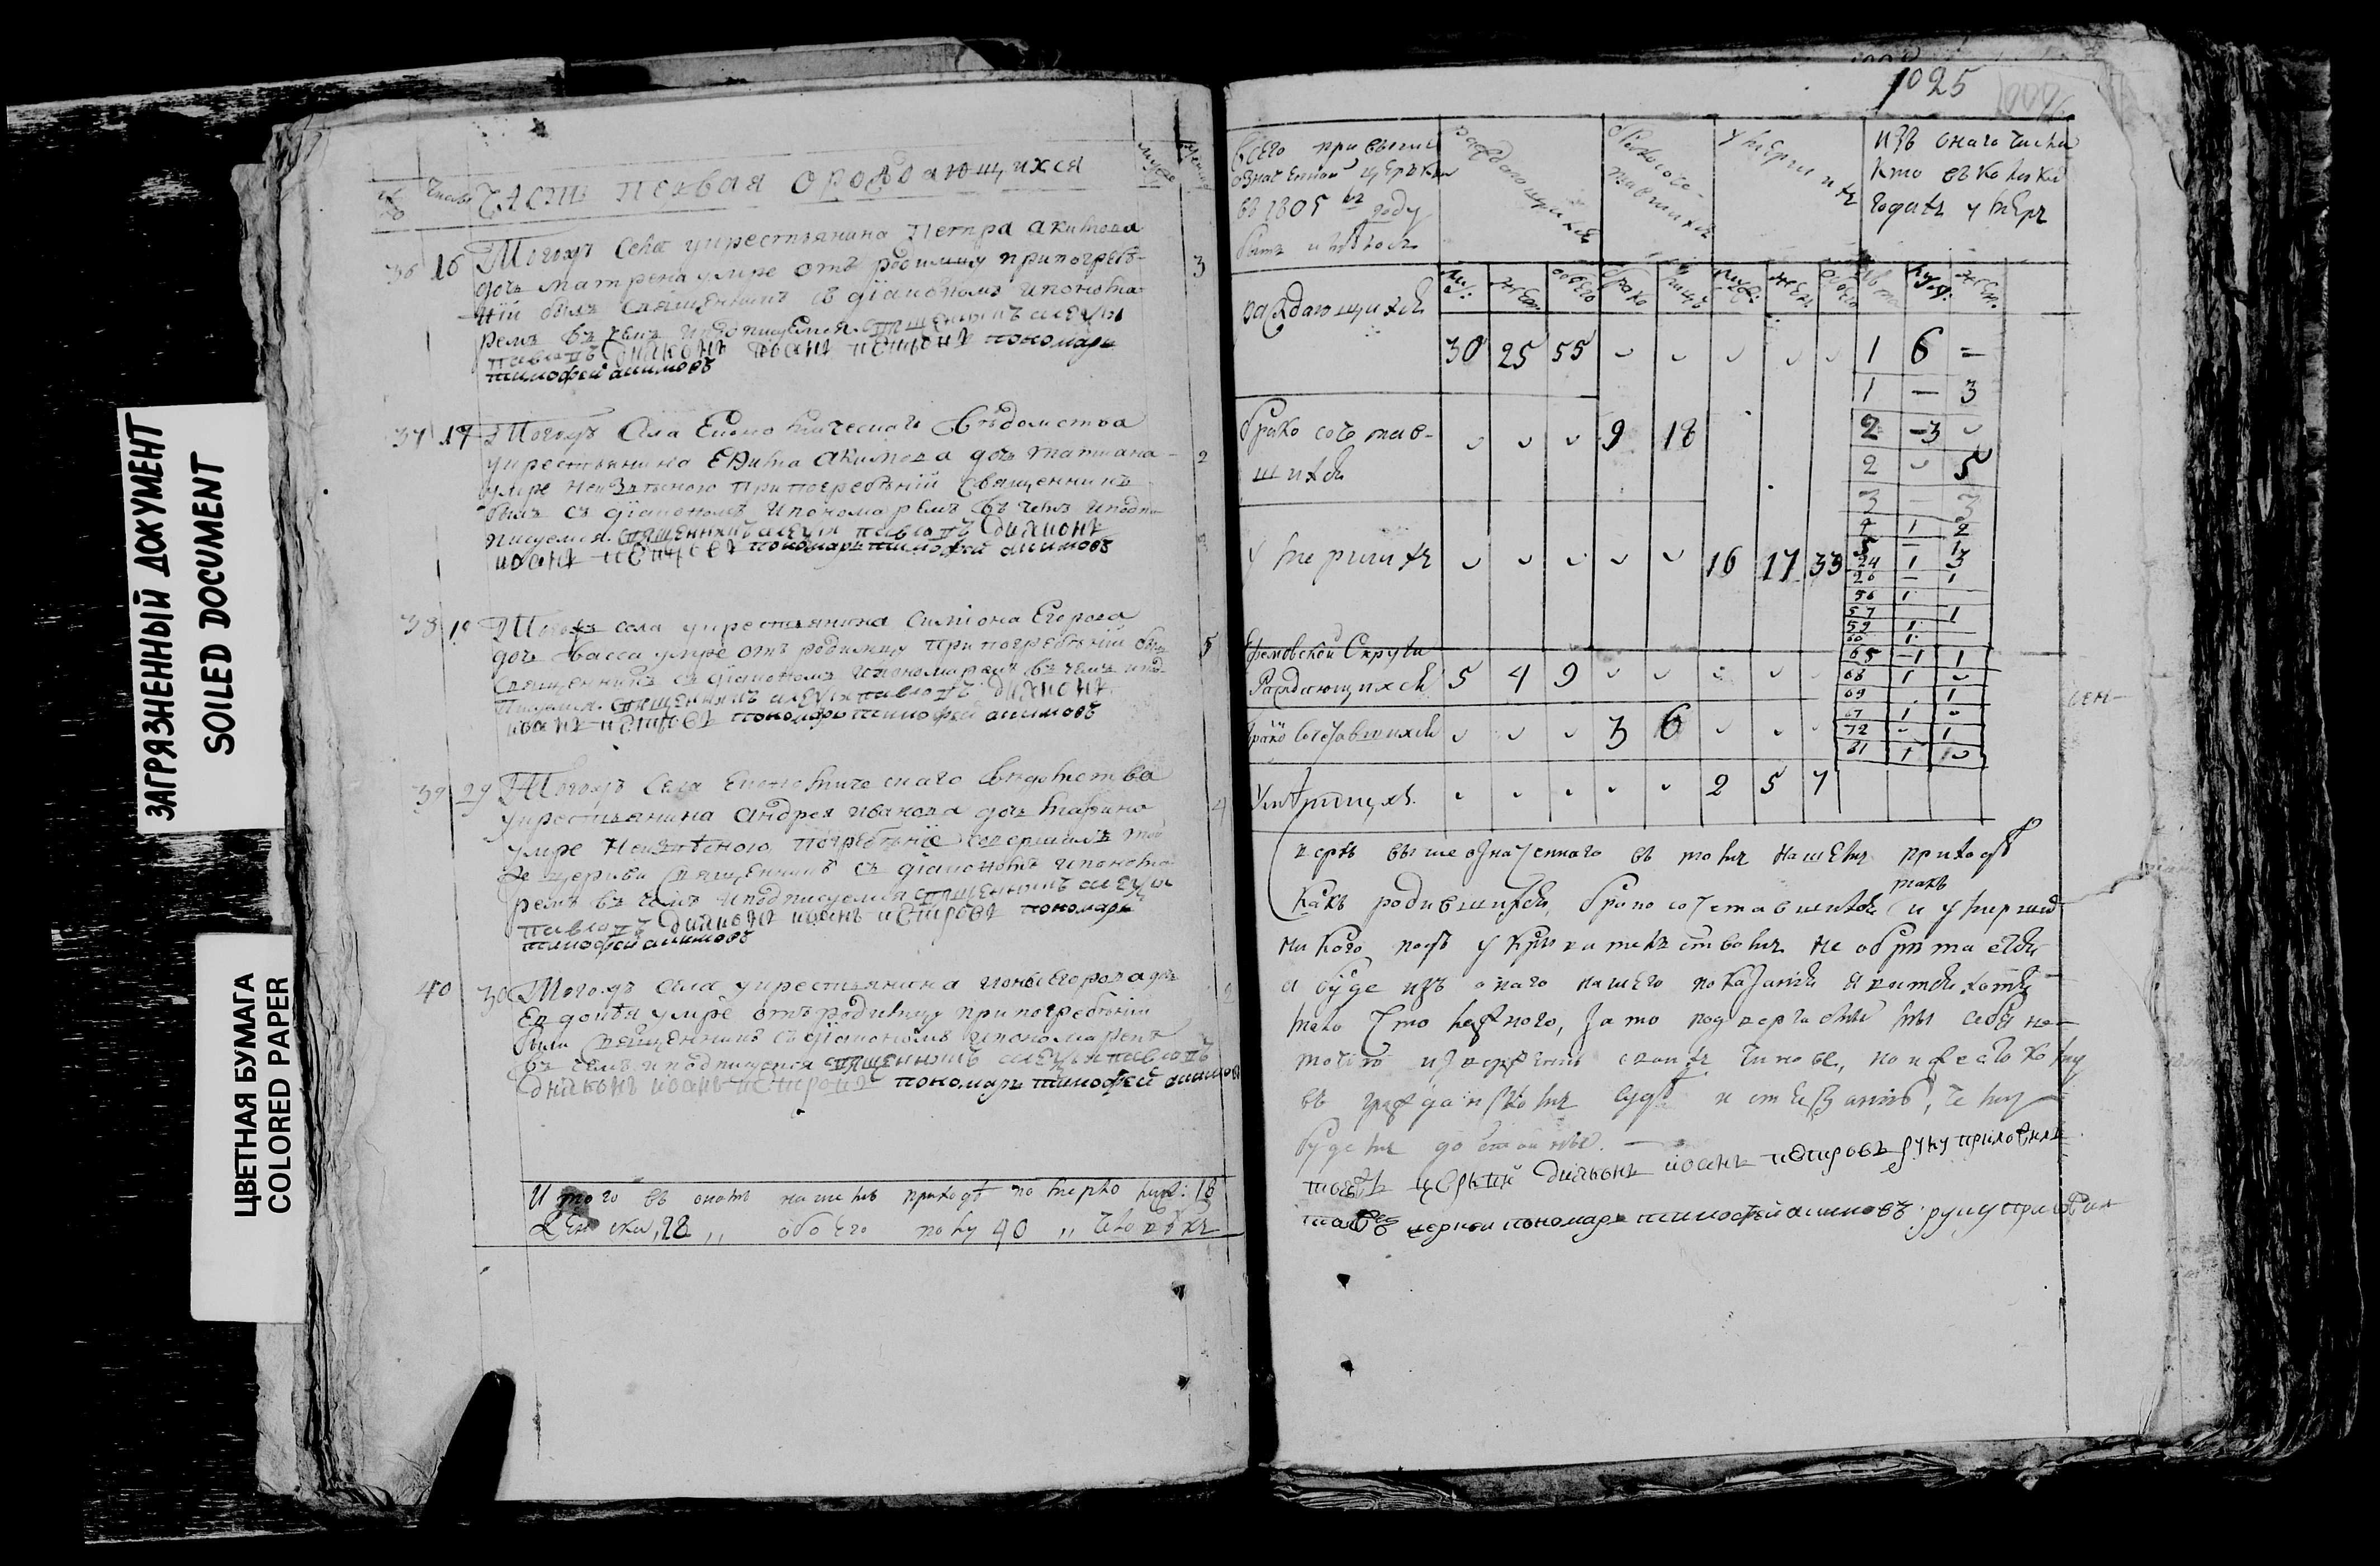 ЗАГРЯЗНЕННЫЙ ДОКУМЕНТ
SOILED DOCUMENT
ЦВЕТНАЯ БУМАГА
COLORED PAPER
Часть первая о раждающихся
36 16 Тогожъ села укрестьянина Петра Акимова
дочь Матрена умре отъ родимцу припогребе-
ніи былъ священникъ съ діакономъ ипонома-
ремъ въ чемъ иподписуемся. священникъ алеѯѣи
павловъ Диаконъ иоанъ петровъ пономарь
тимофей акимовъ
3
37 17 Тогожъ села Економическаго вѣдомства
укрестьянина акимова дочь татиана
умре припогребеніи священникъ
былъ съ діакономъ ипономаремъ въ чемъ иподпи-
писуемся. священникъ алеѯѣи павловъ Диаконъ
иоанъ петровъ пономарь тимофей акимовъ
2
38 18 Тогожъ села укрестьянина Симиона Егорова
дочь васса умре отъ родимцу припогребеніи былъ
священникъ съ діакономъ ипономаремъ въ чемъ ипод-
писуемся. священникъ алеѯѣи павловъ диаконъ
иоанъ петровъ пономарь тимофей акимовъ
5
39 29 Тогожъ села Економическаго вѣдомства
укрестьянина Андрея Иванова дочь Марина
умре погребеніе совершилъ той
же церкви священникъ съ діакономъ ипонома-
ремъ въ чемъ иподписуемся священникъ алеѯѣи
павловъ диаконъ иоанъ петровъ пономарь
тимофей акимовъ
4
40 30 Тогожъ села укрестьянина Ионы Егорова дочь
Евдокѣя умре отъ родимцу припогребеніи
были священникъ съ діакономъ ипономаремъ
въ чемъ иподписуемся священникъ алеѯѣи павловъ
диаконъ иоанъ петровъ пономарь тимофей акимовъ
2
Итого въ ономъ нашемъ приходѣ померло муж: 18
женска, 22 ,, обоего полу 40 ,, человѣкъ
1025
Всего при выше
означенной церькви
въ 1805мъ году
раждающихся
бракосоче-
тавшихся
умершихъ
изъ онаго числа
кто въ колики
годахъ умеръ
муж: жен: обоего лѣта муж: жен:
раждающихся 30 25 55 1 6 =
1 — 3
брако сочетав-
шихся 9 18 2 -3
2 5
3 — 3
4 1 2
умершихъ 16 17 33
24 1 3
26 — 1
56 1
57 1
59 1
60 1
65 -1 1
Округи
Раждающихся 5 4 9 68 1
69 1
Брако сочетавшихся 3 6 67 1
72 1
81 1
Умершихъ 2 5 7
верхъ вышеозначеннаго въ томъ нашемъ приходѣ
какъ родившихся, бракосочетавшихся такъ и умерших
никого подъ укрывательствомъ не обрѣтается
а буде изъ онаго нашего показанія явится хотя
мало что ложного, за то подвергаемъ мы себя не-
точію изверженію своихъ чиновъ, но и жестокому
въ гражданскомъ судѣ истязанію, чему
будемъ достойны.
тоеѧжъ церькви диаконъ иоанъ петровъ руку приложилъ
тоежъ церкви пономарь тимофей акимовъ руку приложил